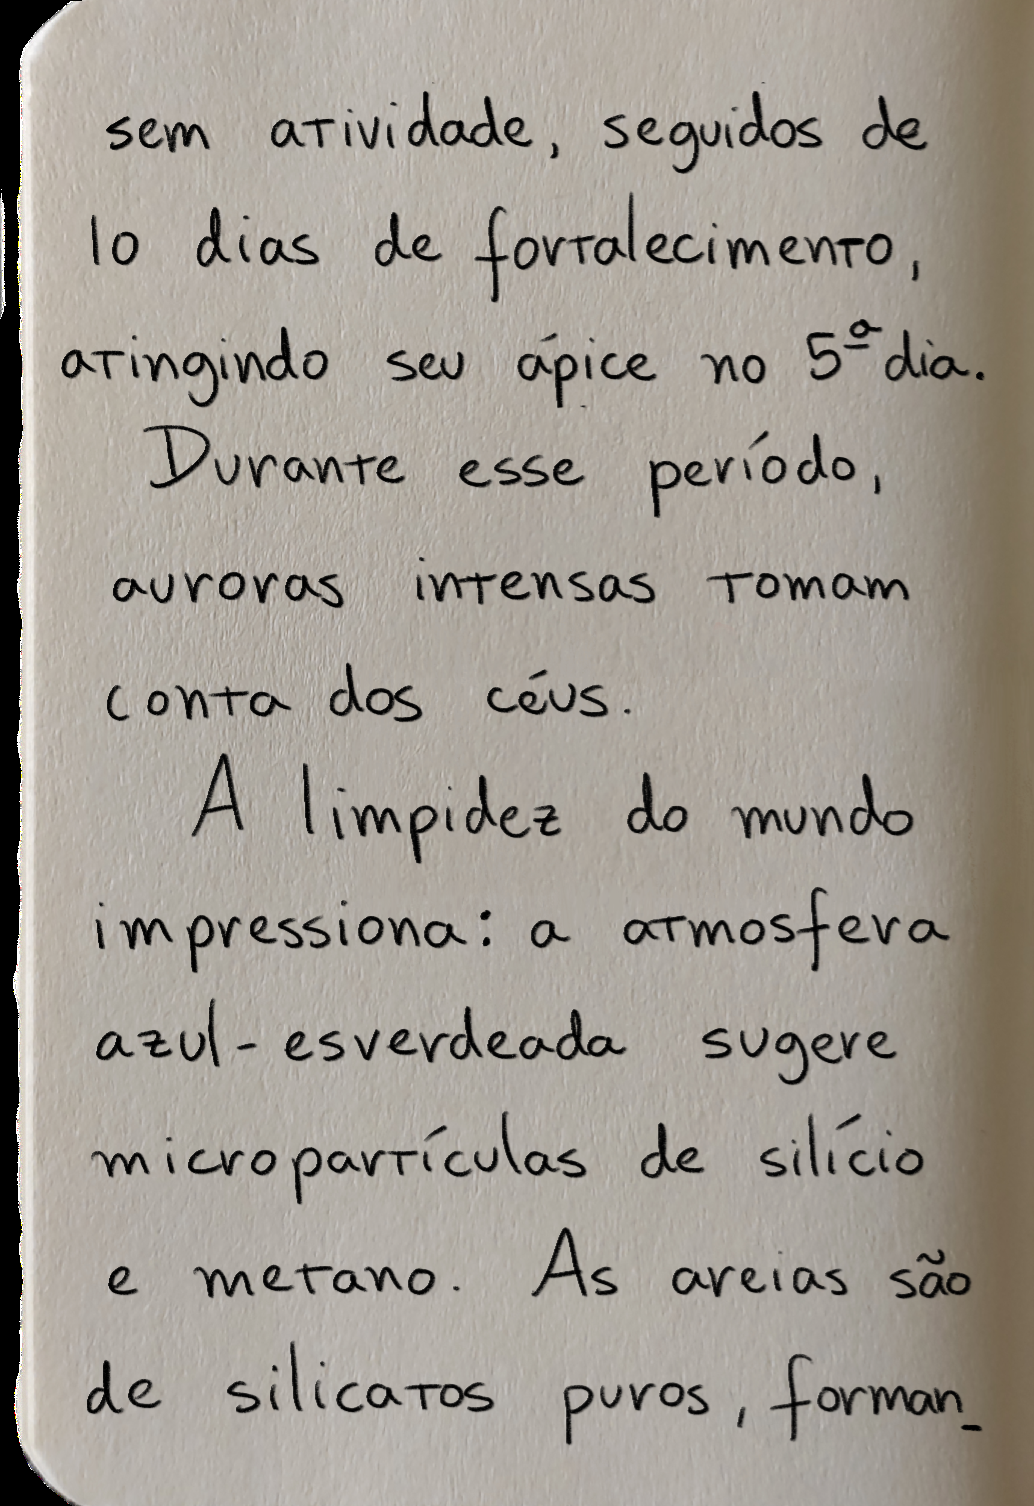 sem atividade, seguidos de
10 dias de fortalecimento,
atingindo seu ápice no 5ª dia.
Durante esse período,
auroras intensas tomam
conta dos céus.
A limpidez do mundo
impressiona: a atmosfera
azul-esverdeada sugere
micropartículas de silício
e metano. As areias são
de silicatos puros, forman_